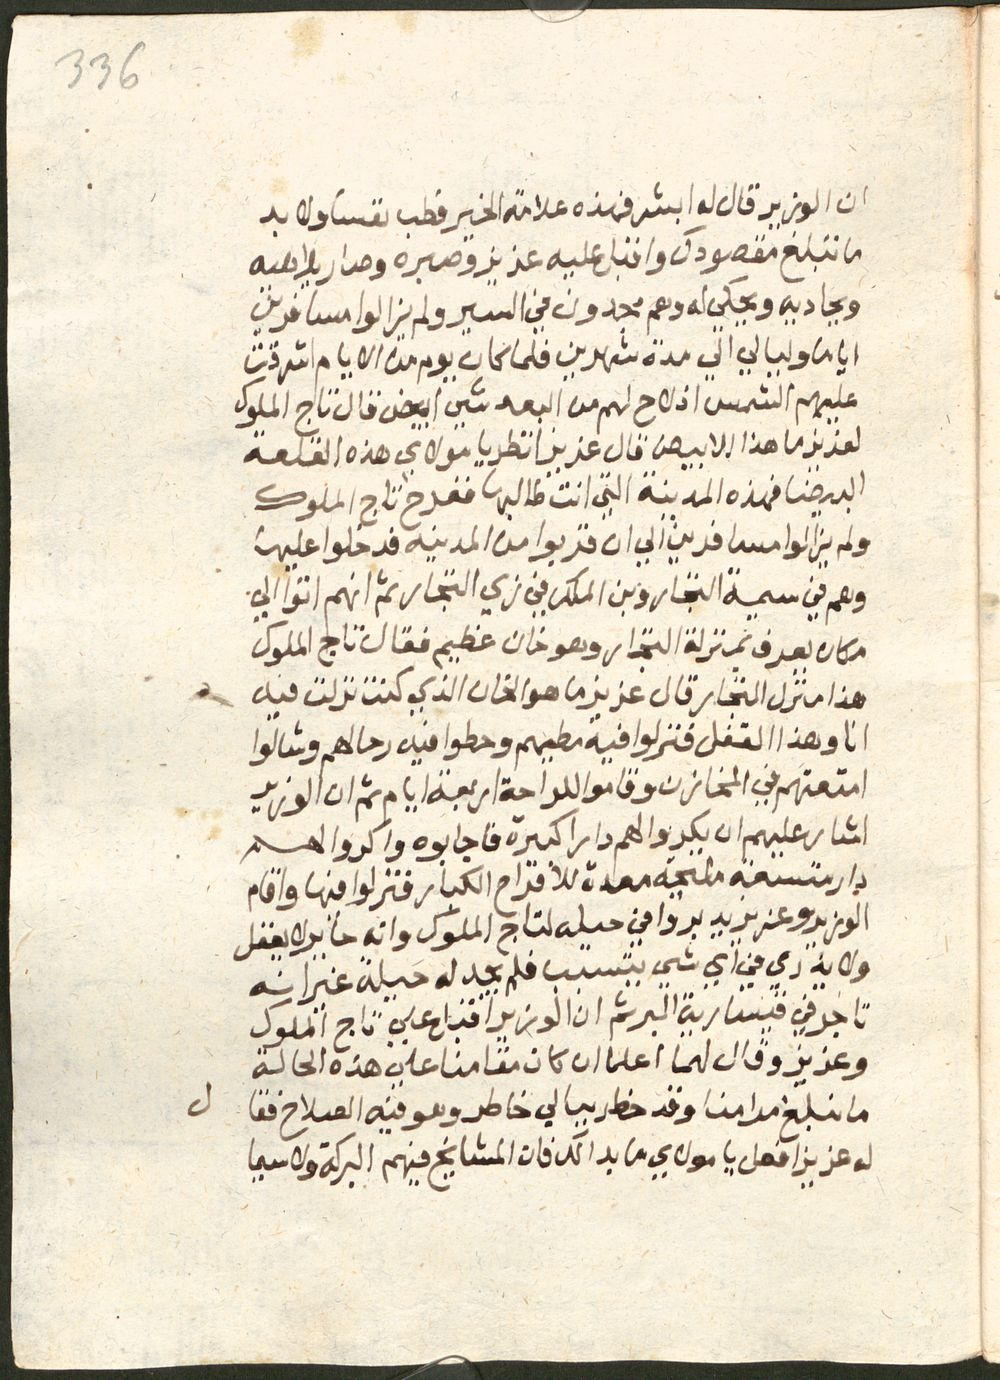 336
ان الوزير قال له ابشر فهذه علامة الخير فطب نفسا ولا بد
ما تبلغ مقصودك واقبل عليه عزيز وصبره وصار يلاهيه
ويحاديه ويحكي له وهم مجدون في السير ولم يزالوا مسافرين
اياما وليالي الي مدة شهرين فلما كان يوم من الايام اشرقت
عليهم الشمس اذ لاح لهم من البعد شي ابيض فقال تاج الملوك
لعزيز ما هذا الابيض قال عزيز انظر يا مولاي هذه القلعة
البيضا فهذه المدينة التي انت طالبها ففرح تاج الملوك
ولم يزالوا مسافرين الي ان قربوا من المدينه فدخلوا عليها
وهم في سمية التجار وبن الملك في زي التجار ثم انهم اتوا الي
مكان يعرف بمنزلة التجار وهو خان عظيم فقال تاج الملوك
هذا منزل التجار قال عزيز ما هو الخان الذي كنت نزلت فيه
انا وهذا القفل فنزلوا فيه مطيهم وحطوا فيه رحالهم وشالوا
امتعتهم في المخازن وقاموا للراحة اربعة ايام ثم ان الوزير
اشار عليهم ان يكروا لهم دارا كبيرة فاجابوه واكروا لهم
دار متسعة مليحة معدة للافراح الكبار فنزلوا فيها واقام
الوزير وعزيز يدبروا في حيله لتاج الملوك وانه حاير لا يعقل
ولا يدري في اي شي يتسبب فلم يجد له حيلة غير انه
تاجر في قيسارية البر ثم ان الوزير اقبل علي تاج الملوك
وعزيز وقال لهما اعلما ان كان مقامنا علي هذه الحالة
ما نبلغ مرامنا وقد خطر ببالي خاطر وهو فيه الصلاح فقا
ل
له عزيز افعل يا مولاي ما بدا لك فان المشايخ فيهم البركة ولا سيما